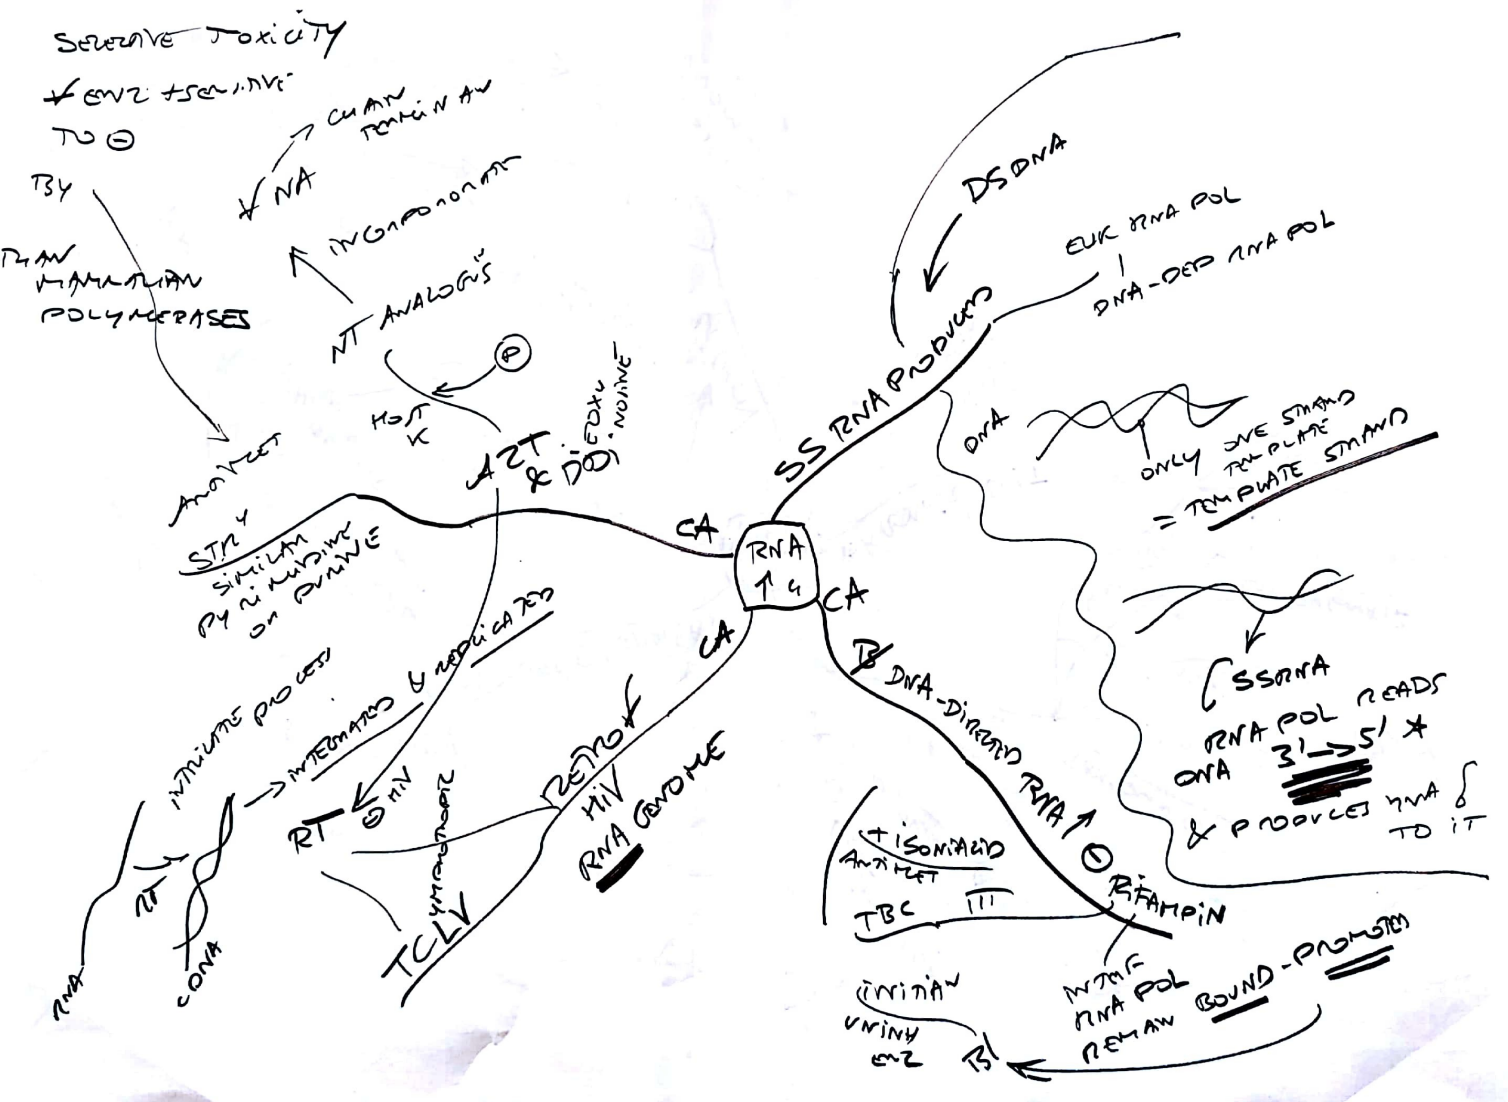 SELECTIVE TOXICITY
TO ⊖
BY
THAN
MAMMALIAN
POLYMERASES
CHAIN
NA
INCORPORATE
NT ANALOGUS
P
HOST
K
AZT
& DDI
EOXY
INOSINE
ANTIMET
STR
SIMILAR
PYRIMIDINE
OR PURINE
CA
RNA
SS RNA PRODUCED
DSDNA
EUK RNA POL
DNA-DEP RNA POL
DNA
ONLY ONE STRAND
TEMPLATE
= TEMPLATE STRAND
SSRNA
RNA POL READS
DNA 3' → 5' *
& PRODUCES RNA
TO IT
CA
DNA-DIRECTED RNA ↑ ⊖
RIFAMPIN
+ ISONIAZID
ANTIMET
TBC III
INTERF
RNA POL
REMAIN BOUND-PROMOTER
ENZ
CA
RETROV
HIV
RNA GENOME
TCLV
YMPHOTROPIC
RT
⊖ HIV
INTRICATE PROCESS
→ INTEGRATED & REPLICATED
RNA
RT
cDNA